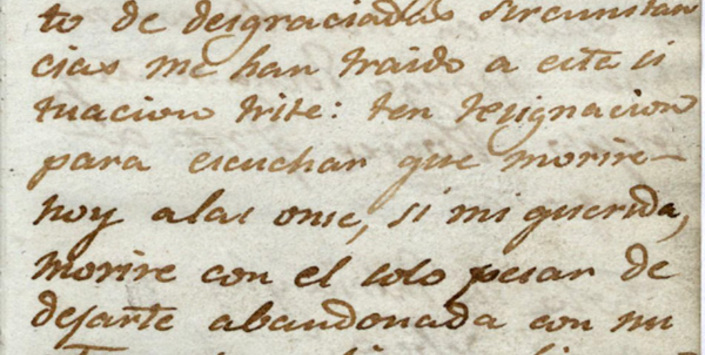 to de desgraciadas sircunstan
cias me han traido a esta si
tuacion triste: ten resignacion
para escuchar que morire
hoy alas onse, si mi querida,
morire con el solo pesar de
dejarte abandonada con nu